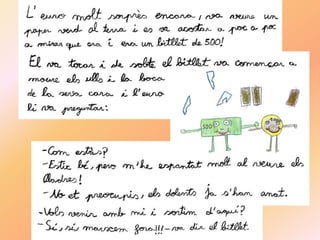 L'euro molt sorprès encara, va veure un
paper verd al terra i es va acostar a poc a poc
a mirar que era i era un bitllet de 500!
El va tocar i de sobte el bitllet va començar a
moure els ulls i la boca
de la seva cara i l'euro
li va preguntar:
500
-Com estàs?
-Estic bé, pero m'he espantat molt al veure els
lladres!
-No et preocupis, els dolents ja s'han anat.
-Vols venir amb mi i sortim d'aquí?
-Si, sí marxem fora!!!-va dir el bitllet.